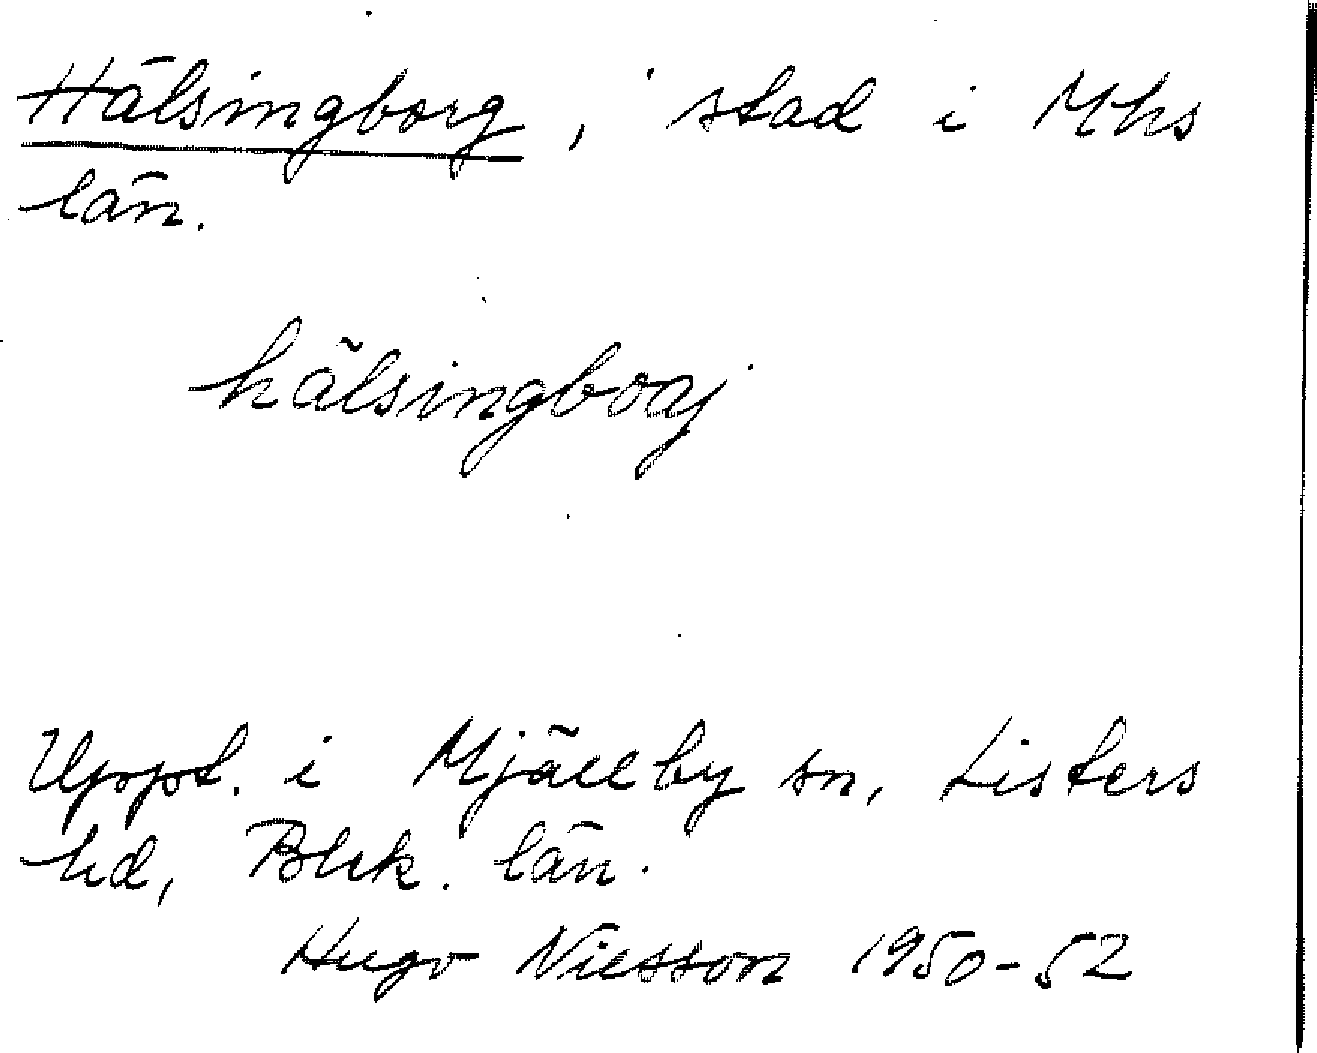 Hälsingborg, stad i Mhs
län.
hälsingboṛj
Uppt. i Mjällby sn, Listers
hd, Blek. län.
Hugo Nilsson 1950-52